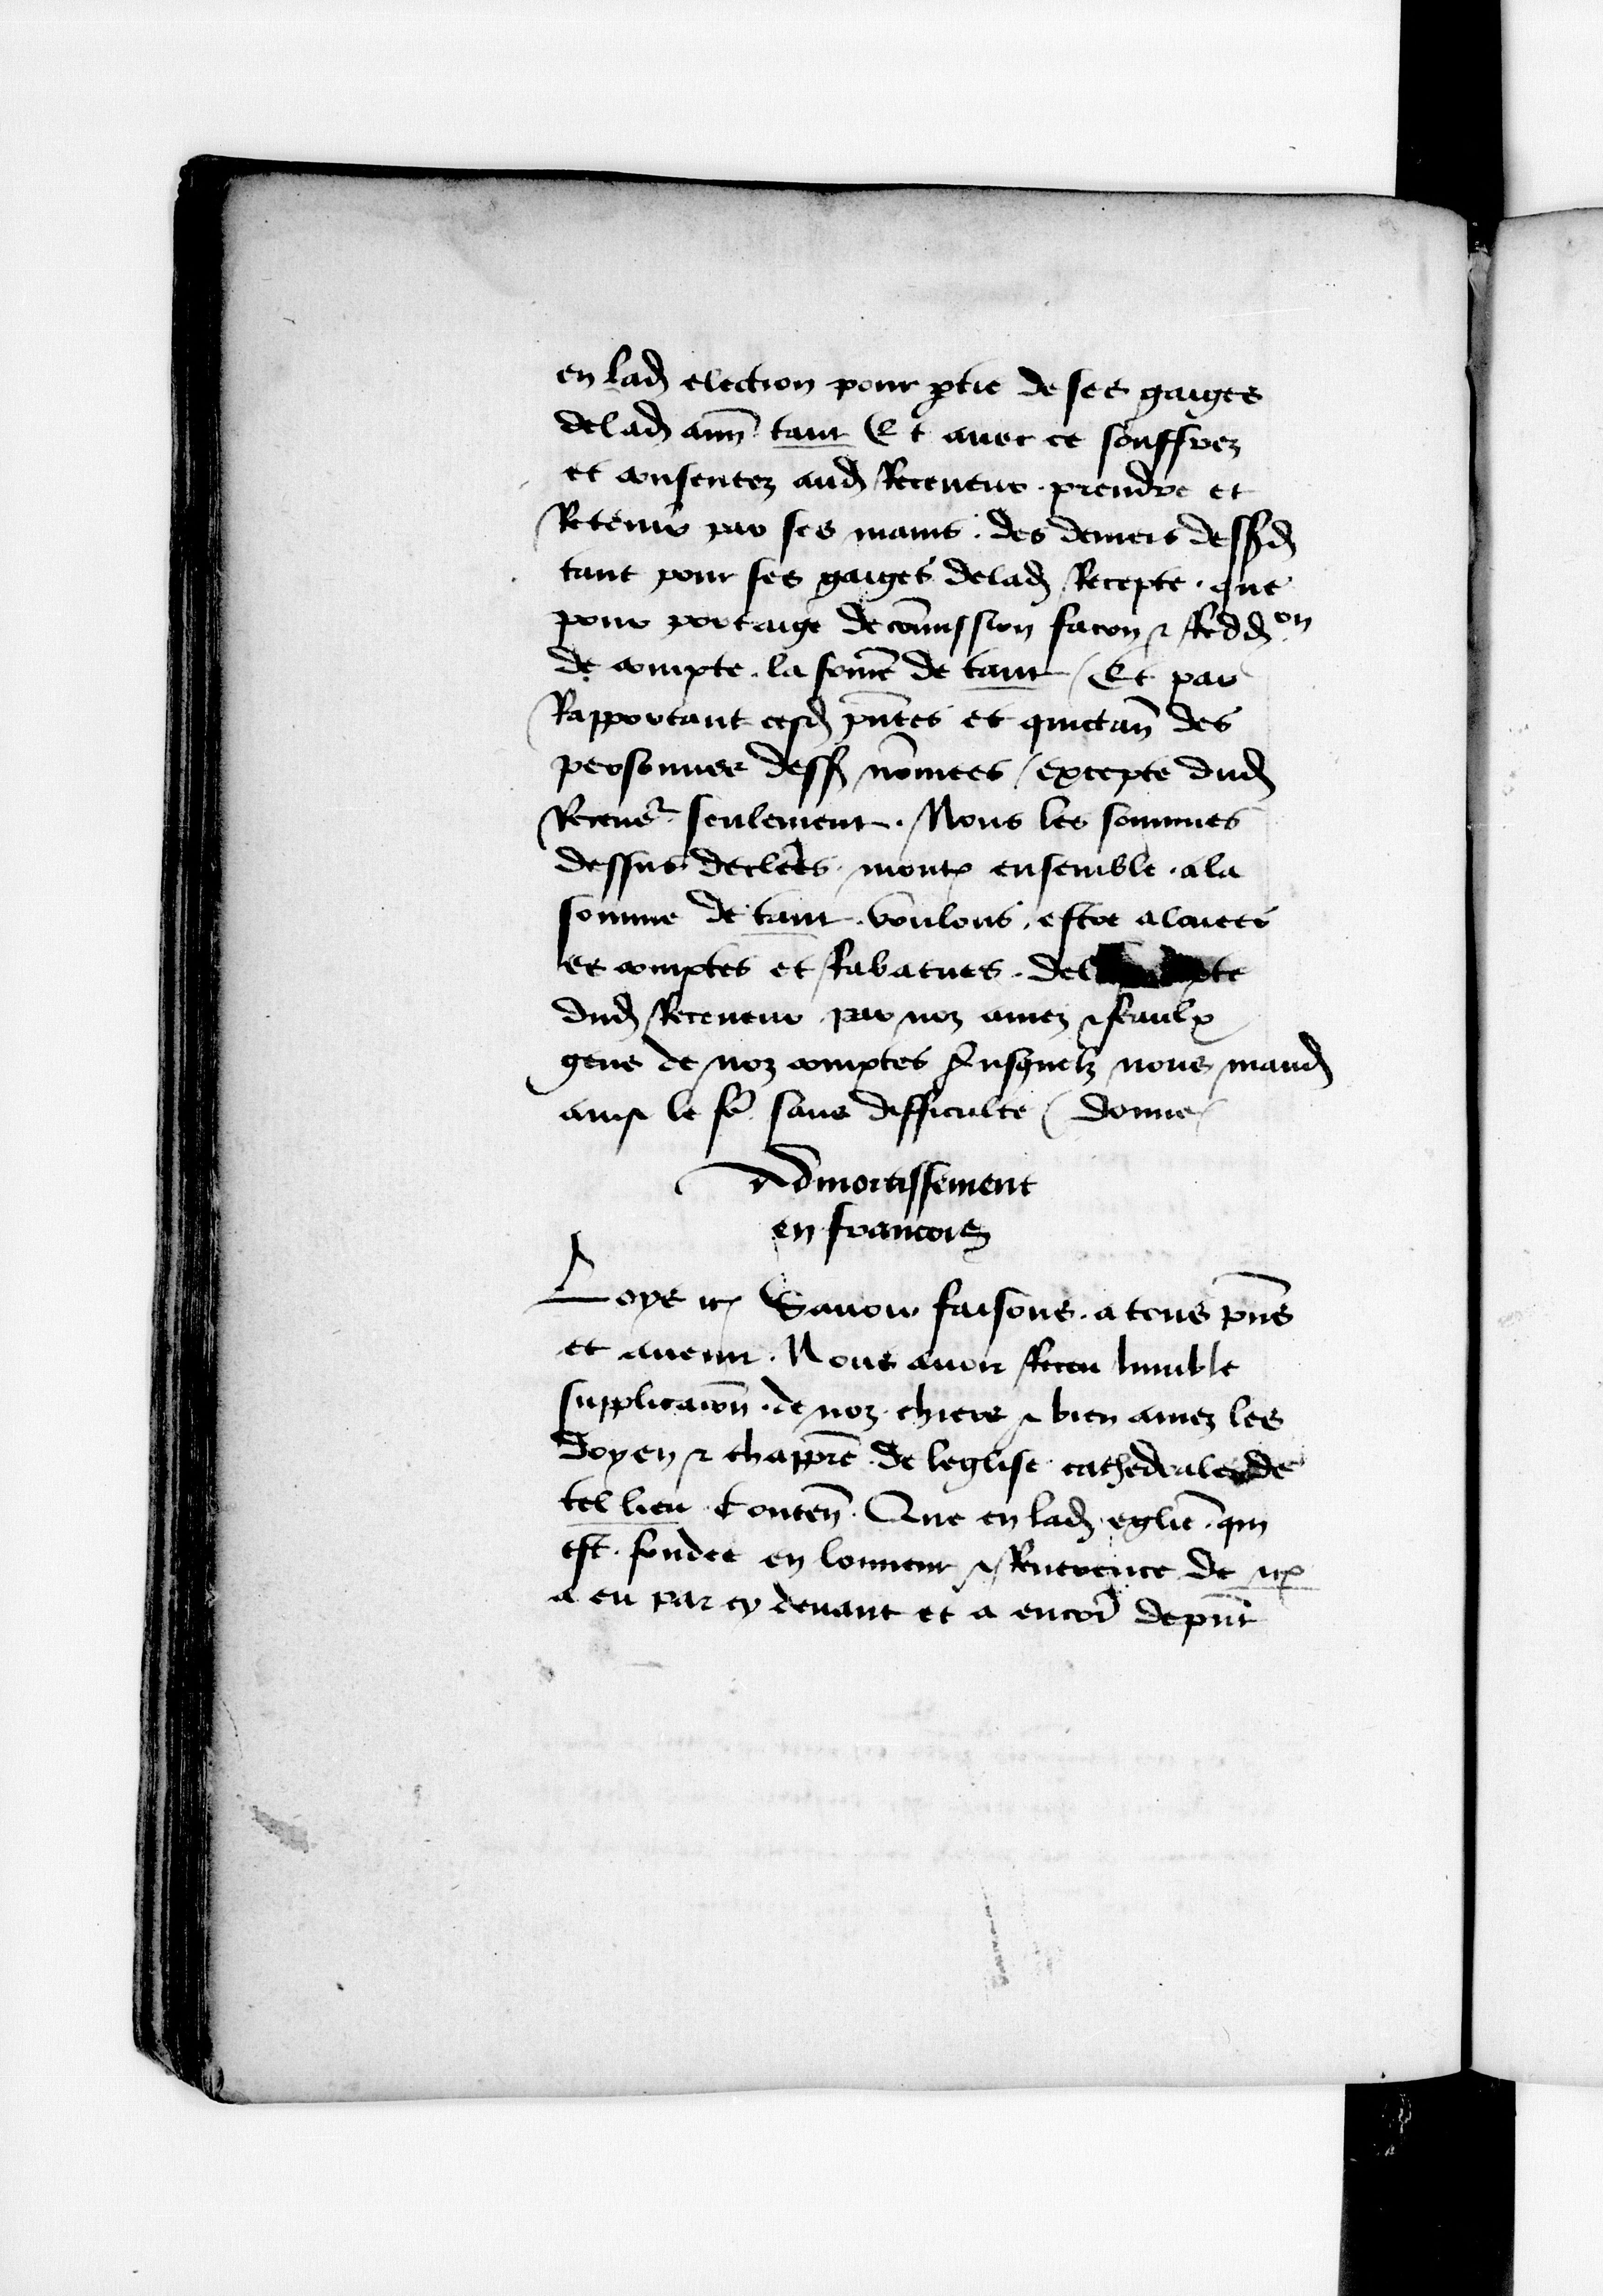 en lad election pour ptie de ses gaiges
de lad ann tant Et avec ce souffrez
et consentez aud Receveur prendre et
Retenir par ses mains des deniers dessusd
tant pour ses gaiges de lad Recepte que
pour portaige de comission facon & Redd on
de compte la some de tant Et par
Rapportant cesd pntes et quictan des
personnes dess nomees excepte dud
Recevr seulement Nous les sommes
dessus declees mont ensemble a la
somme de tant voulons estre alouees
es comptes et Rabatues de
dud Receveur par noz amez & feaulx
gens de noz comptes Ausquelz nous mand
ainsi le fe sans difficulte Donne
Admortissement
en francois
Loys &c Savoir faisons a tous pns
et avenir Nous avoir Receu humble
supplicaion de noz chiers & bien amez les
doyen & chappre de leglise cathedrale de
tel lieu Conten Que en lad eglie qui
est fondee en lonneur & Reverence de
a eu par cy devant et a encore de pnt